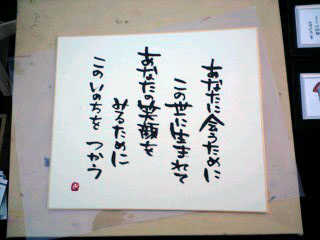 あなたに会うために
この世に生まれて
あなたの笑顔を
みるために
このいのちを つかう